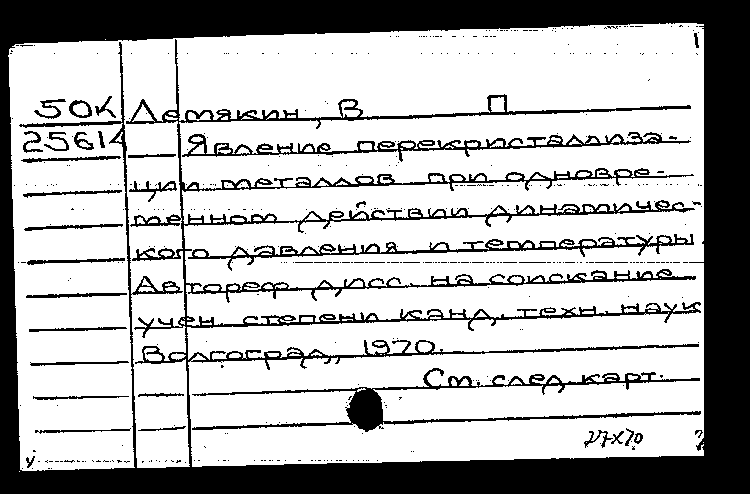 50К Лемякин, В П
25614 Явление перекристаллиза-
ции металлов при одновре-
менном действии динамичес-
кого давления и температуры.
Автореф. дисс. на соискание
учен. степени канд. техн. наук
Волгоград, 1970.
См. след. карт.
27X70